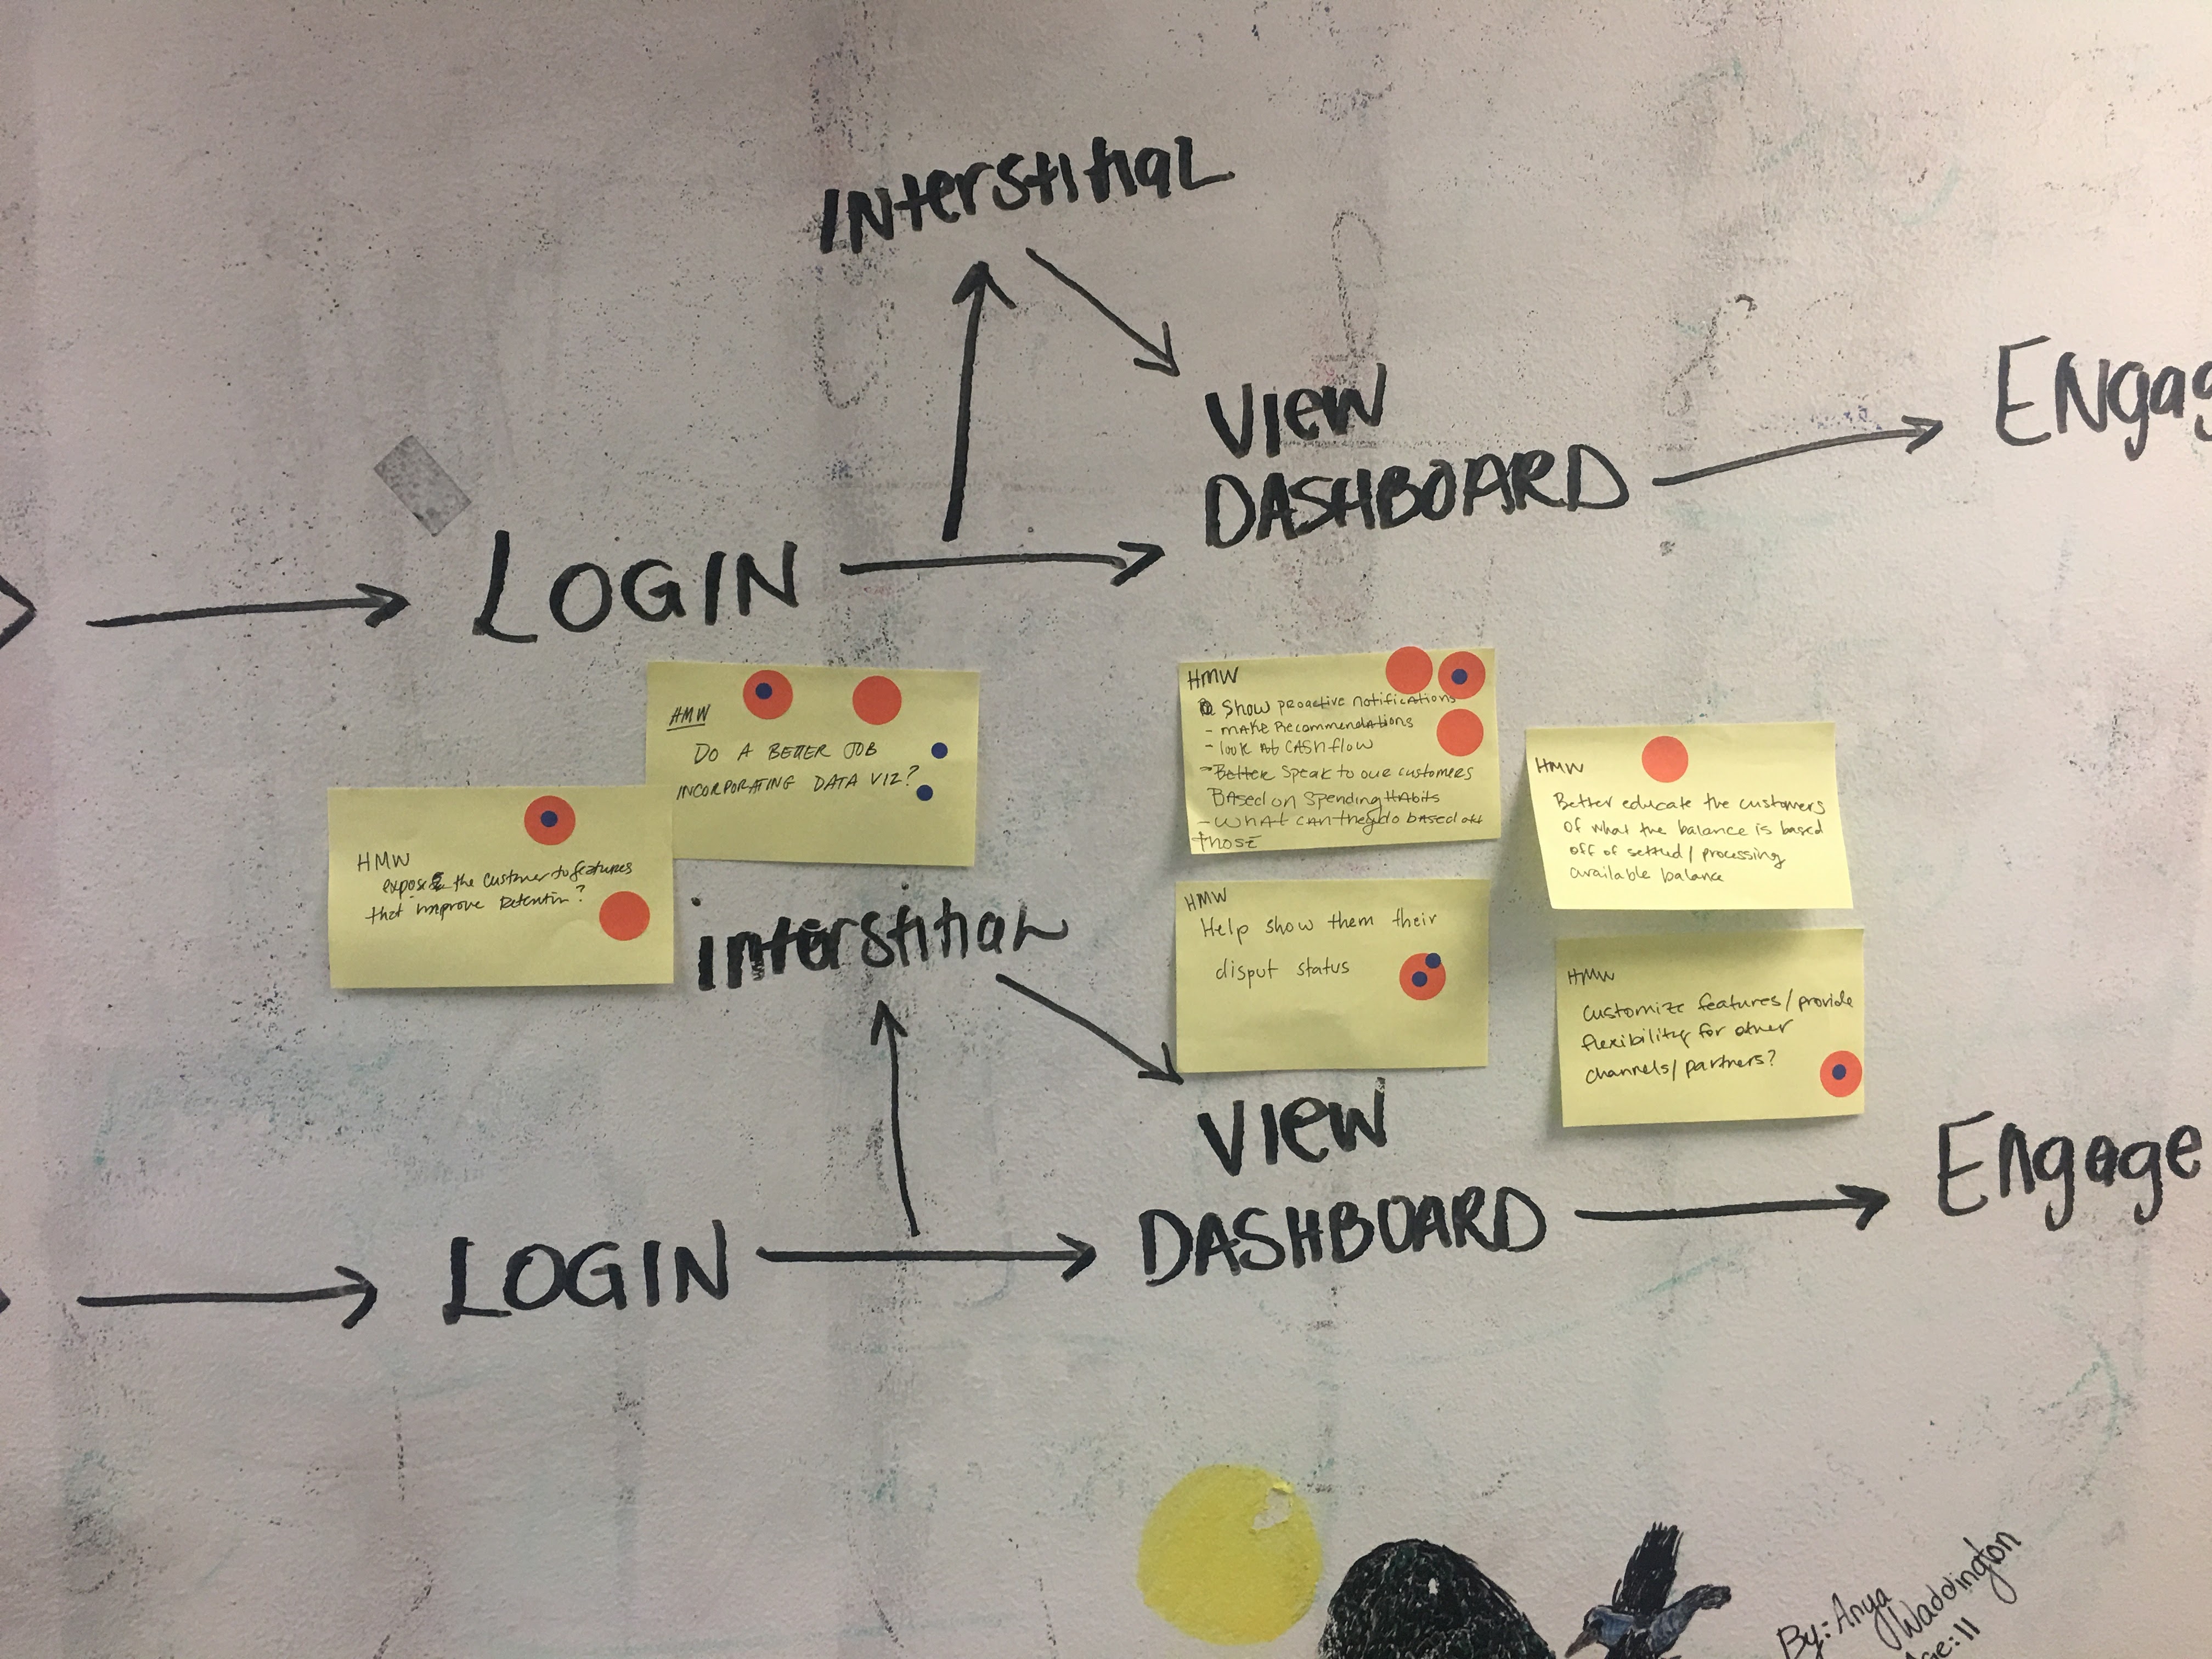 INterstitiaL
VIEW
DASHBOARD
ENgag
LOGIN
HMW
DO A BETTER JOB
INCORPORATING DATA VIZ?
HMW
expose the customer to features
that improve retention?
HMW
Show proactive notifications
- make Recommendations
- look at CASH flow
- Better Speak to our customers
Based on Spending HAbits
- WHAT CAN they do based off
those
HMW
Better educate the customers
of what the balance is based
off of settled/processing
available balance
HMW
Help show them their
disput status
HMW
Customize features/provide
flexibility for other
channels/partners?
interstitiaL
VIEW
DASHBOARD
Engage
LOGIN
By: Anya
Waddington
Age: 11